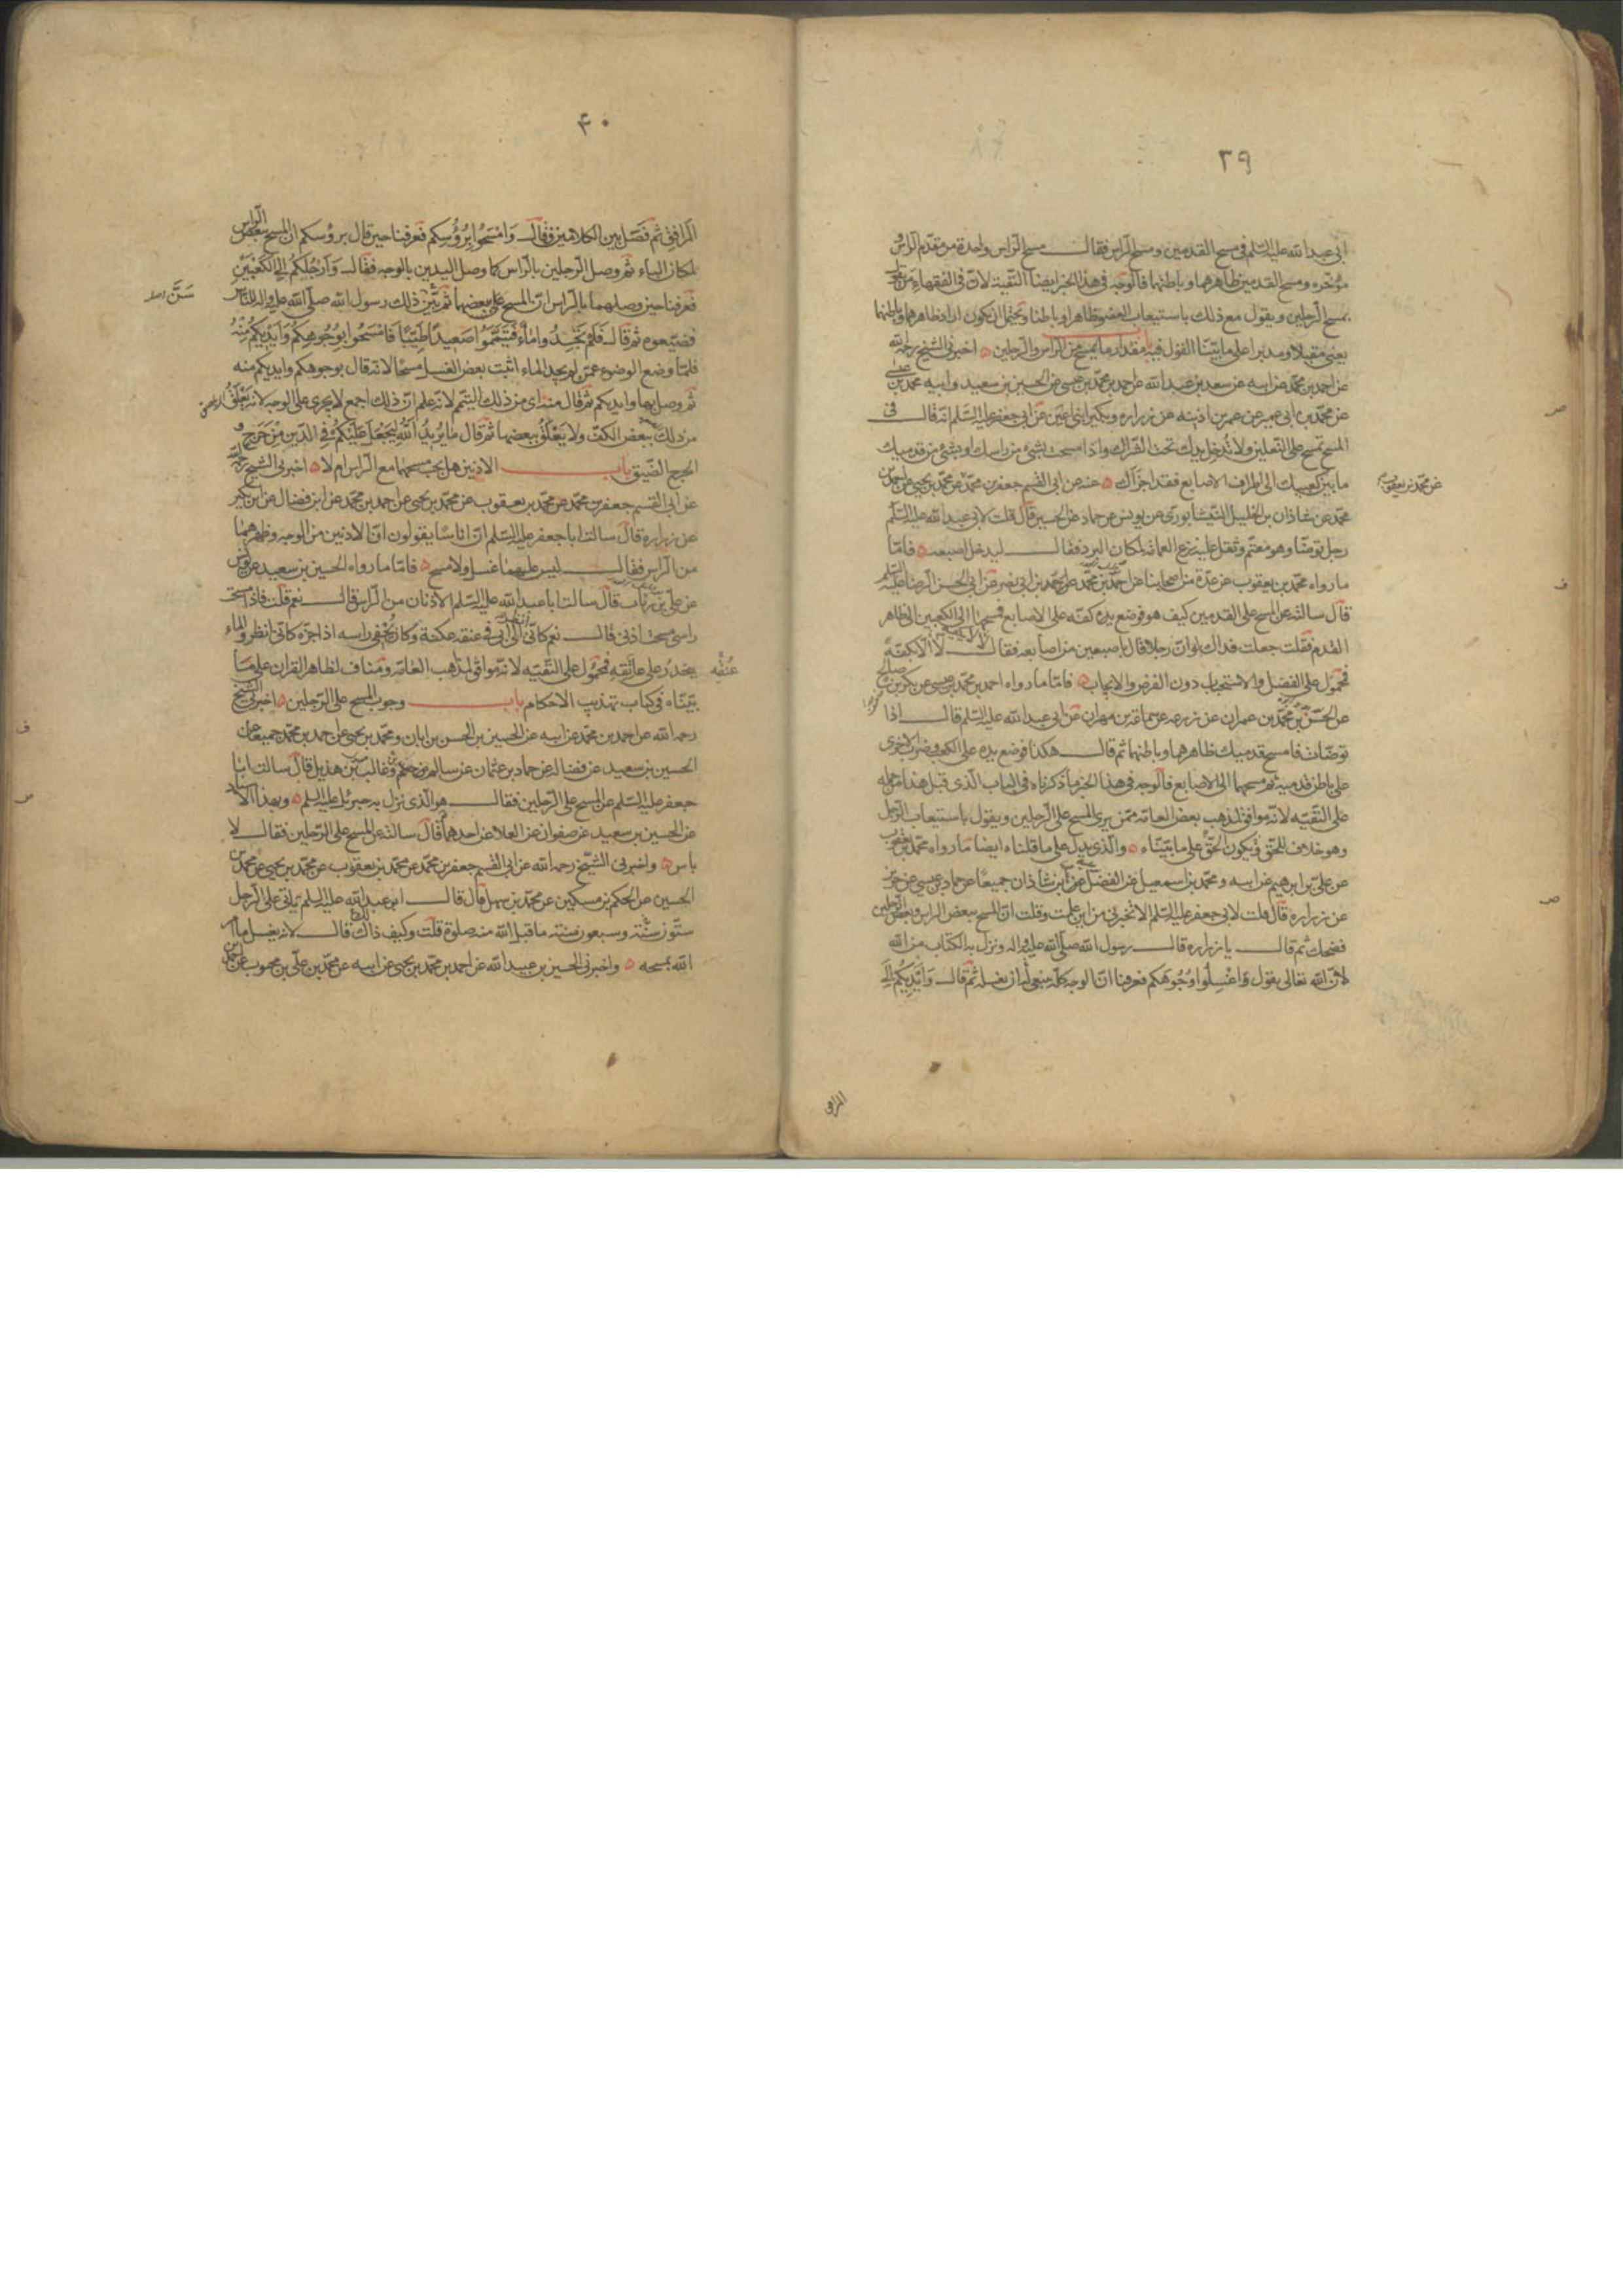 ٣٩
ابى عبد الله عليه السلم فى مسح القدمين ومسح الراس فقال مسح الراس واحدة من مقدم الراس و
مؤخره ومسح القدمين ظاهرهما وباطنهما فالوجه فى هذا الخبر ايضا التقية لان فى الفقهاء من يقول
بمسح الرجلين ويقول مع ذلك باستيعاب العضو ظاهرا وباطنا ويحتمل ان يكون اراد ظاهرهما وباطنهما
يعنى مقبلا ومدبرا على ما بيّنا القول فيه باب مقدار ما يمسح من الراس والرجلين اخبرنى الشيخ رحمه الله
عن احمد بن محمد عن ابيه عن سعد بن عبد الله عن احمد بن محمد بن عيسى عن الحسين بن سعيد وابيه محمد بن عيسى
عن محمد بن ابى عمير عن عمر بن اذينه عن زراره وبكير ابنى اعين عن ابى جعفر عليه السلم انه قال فى
المسح تمسح على النعلين ولا تدخل يدك تحت الشراك واذا مسحت بشىء من راسك او بشىء من قدميك
ما بين كعبيك الى اطراف الاصابع فقد اجزاك عنه عن ابى القسم جعفر بن محمد عن محمد بن يحيى عن احمد بن
عن محمد بن يعقوب
محمد عن شاذان بن الخليل النيشابورى عن يونس عن حماد عن الحسين قال قلت لابى عبد الله عليه السلم
رجل توضا وهو معتم وثقل عليه نزع العمامة لمكان البرد فقال ليدخل اصبعه فامّا
ما رواه محمد بن يعقوب عن عدة من اصحابنا عن احمد بن محمد عن احمد بن ابى نصر عن ابى الحسن الرضا عليه السلم
قال سالته عن المسح على القدمين كيف هو فوضع يده كفه على الاصابع فمسحها الى الكعبين الى ظاهر
القدم فقلت جعلت فداك لو ان رجلا قال باصبعين من اصابعه فقال لا الا بكفه
فمحمول على الفضل والاستحباب دون الفرض والايجاب فامّا ما رواه احمد بن محمد بن عيسى عن بكر بن صالح
عن الحسن بن محمد بن عمران عن زرعه عن سماعة بن مهران عن ابى عبد الله عليه السلم قال اذا
توضات فامسح قدميك ظاهرهما وباطنهما ثم قال هكذا فوضع يده على الكعب وضرب الاخرى
على باطن قدميه ثم مسحهما الى الاصابع فالوجه فى هذا الخبر ما ذكرناه فى الباب الذى قبل هذا من حمله
على التقيه لانه موافق لمذهب بعض العامة ممن يرى المسح على الرجلين ويقول باستيعاب الرجل
وهو خلاف للحق ويكون الحق على ما بيّناه والذى يدل على ما قلناه ايضا ما رواه محمد بن يعقوب
عن على بن ابرهيم عن ابيه ومحمد بن اسمعيل عن الفضل بن شاذان جميعا عن حماد بن عيسى عن حريز
عن زراره قال قلت لابى جعفر عليه السلم الا تخبرنى من اين علمت وقلت ان المسح ببعض الراس وبعض الرجلين
فضحك ثم قال يا زراره قال رسول الله صلى الله عليه واله ونزل به الكتاب من الله
لان الله تعالى يقول وَاغْسِلُوا وُجُوهَكم فعرفنا ان الوجه كله ينبغى ان يغسله ثم قال وَاَيْدِيَكُمْ اِلَى
المرافق
٤٠
المرافق ثم فصّل بين الكلامين فقال وَامْسَحُوا بِرُؤُسِكم فعرفنا حين قال برؤسكم ان المسح ببعض الراس
لمكان الباء ثم وصل الرجلين بالراس كما وصل اليدين بالوجه فقال وَاَرْجُلَكُمْ اِلَى الْكَعْبَيْنِ
فعرفنا حين وصلهما بالراس ان المسح على بعضهما ثم بيّن ذلك رسول الله صلى الله عليه واله للناس
سَنَّ اصل
فضيّعوه ثم قال فَلَمْ تَجِدُوا مَاءً فَتَيَمَّمُوا صَعِيداً طَيِّباً فَامْسَحُوا بِوُجُوهِكُم وَاَيْدِيكُمْ مِنْهُ
فلما وضع الوضوء عمن لم يجد الماء اثبت بعض الغسل مسحا لانه قال بوجوهكم وايديكم منه
ثم وصل بها وايديكم ثم قال منه اى من ذلك التيمم لانه علم ان ذلك اجمع لا يجرى على الوجه لانه يَعْلَقُ
من ذلك ببعض الكف ولا يَعْلَقُ ببعضها ثم قال مَا يُرِيدُ اَللّٰهُ لِيَجْعَلَ عَلَيْكُمْ فِى الدِّينِ مِنْ حَرَجٍ و
الحرج الضيق باب الاذنين هل يجب مسحهما مع الراس ام لا اخبرنى الشيخ رحمه الله
عن ابى القسم جعفر بن محمد عن محمد بن يعقوب عن محمد بن يحيى عن احمد بن محمد عن ابن فضال عن ابن بكير
عن زراره قال سالت ابا جعفر عليه السلم ان اناسًا يقولون ان الاذنين من الوجه وظهرهما
من الراس فقال ليس عليهما غسل ولا مسح فامّا ما رواه الحسين بن سعيد عن يونس
عن على بن رئاب قال سالت ابا عبد الله عليه السلم الاذنان من الراس قال نعم قلت فاذا مسحت
راسى مسحت اذنى قال نعم كانى انظر الى ابى فى عنقه عكنة وكان يحفى راسه اذا جزّه كانى انظر والماء
ينحدر على عنقه فمحمول على التقيه لانه موافق لمذاهب العامّه ومناف لظاهر القران على ما
عُنُقِه
بيّناه فى كتاب تهذيب الاحكام باب وجوب المسح على الرجلين اخبرنى الشيخ
رحمه الله عن احمد بن محمد عن ابيه عن الحسين بن الحسن بن ابان ومحمد بن يحيى عن احمد بن محمد جميعا عن
الحسين بن سعيد عن فضاله عن حماد بن عثمان عن سالم وغالب بن هذيل قال سالت ابا
جعفر عليه السلم عن المسح على الرجلين فقال هو الذى نزل به جبرئيل عليه السلم وبهذا الاسناد
عن الحسين بن سعيد عن صفوان عن العلا عن احدهما قال سالته عن المسح على الرجلين فقال لا
باس واخبرنى الشيخ رحمه الله عن ابى القسم جعفر بن محمد عن محمد بن يعقوب عن محمد بن يحيى عن محمد بن
الحسين عن الحكم بن مسكين عن محمد بن سهل قال قال ابو عبد الله عليه السلم ياتى على الرجل
ستّون سنة وسبعون سنة ما قبل الله منه صلوة قلت وكيف ذاك قال لانه يغسل ما امر
الله بمسحه واخبرنى الحسين بن عبيد الله عن احمد بن محمد بن يحيى عن ابيه عن محمد بن على بن محبوب عن احمد بن